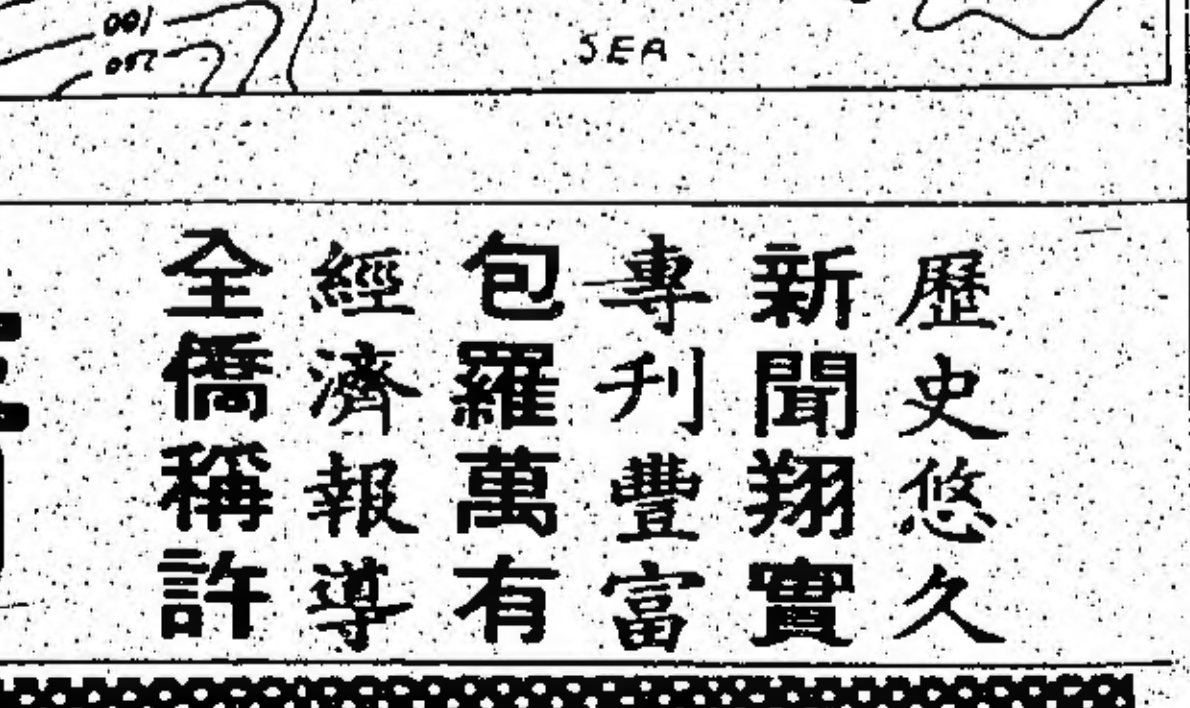 001
SEA
歷史悠久
新聞翔實
專刊豐富
包羅萬有
經濟報導
全僑稱許